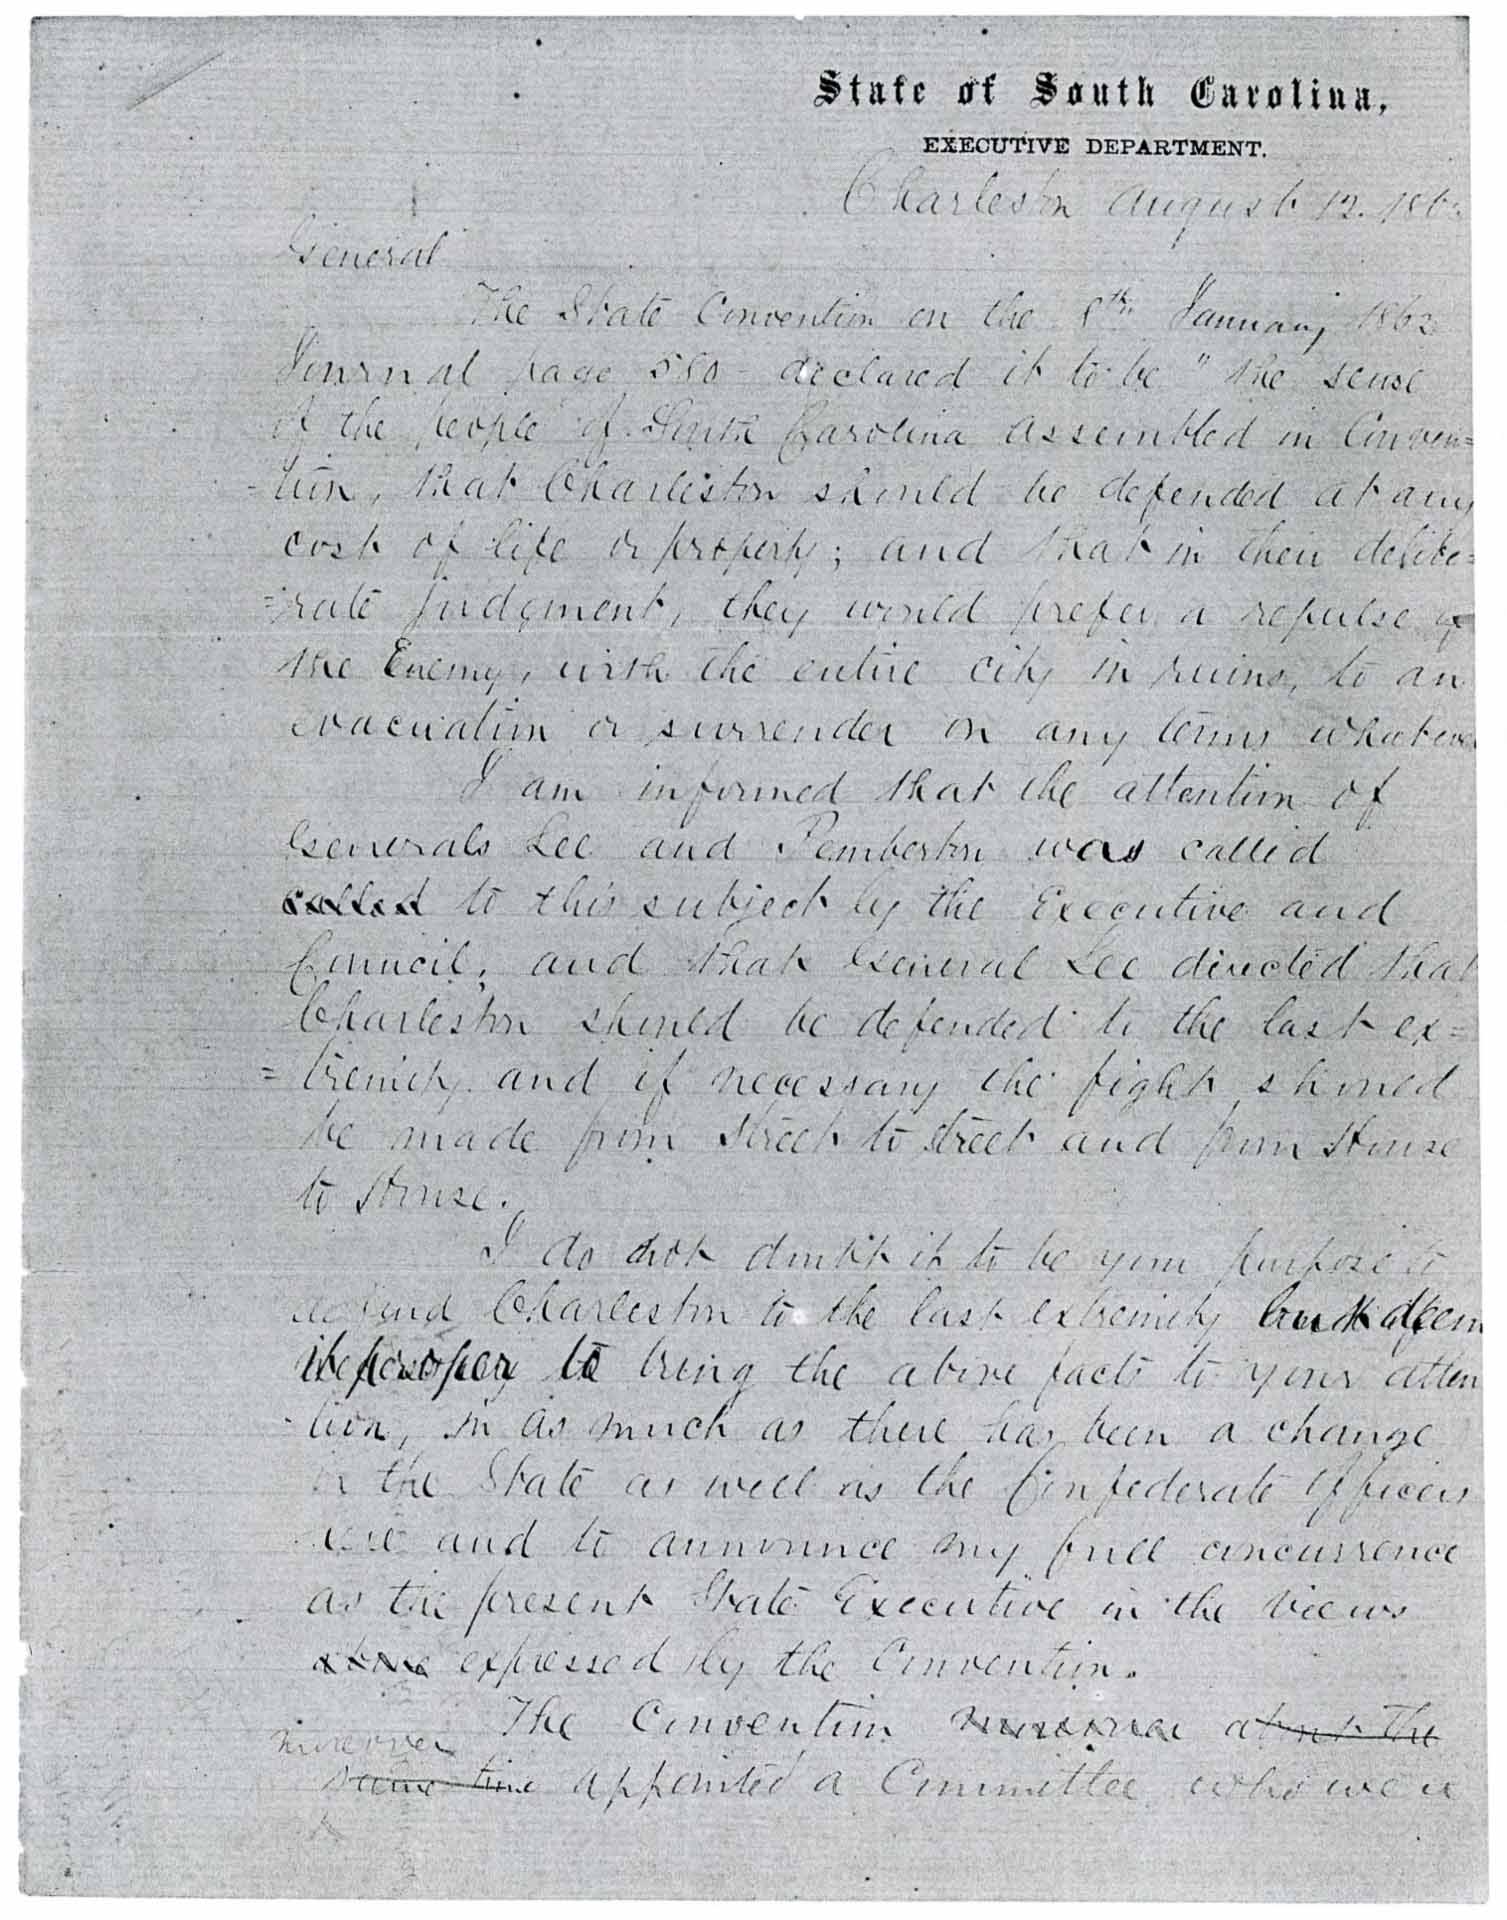 State of South Carolina,
EXECUTIVE DEPARTMENT.
Charleston August 12. 186
General
The State Convention on the 8th January 1862
Journal page 580 declared it to be "the sense
of the people of South Carolina assembled in Conven=
tion, that Charleston should be defended at any
cost of life or property; and that in their delibe=
=rate judgment, they would prefer a repulse of
the Enemy, with the entire city in ruins, to an
evacuation or surrender on any terms whatever
I am informed that the attention of
Generals Lee and Pemberton was called
called to this subject by the Executive and
Council, and that General Lee directed that
Charleston should be defended to the last ex=
=tremity and if necessary the fight should
be made from Street to Street and from House
to House.
I do not doubt it to be your purpose to
defend Charleston to the last extremity but deem
it proper to bring the above facts to your atten
tion, in as much as there has been a change
in the State as well as the Confederate Officers
here and to announce my full concurrence
as the present State Executive in the views
above expressed by the Convention.
The Convention moreover about the
moreover
same time appointed a Committee who were